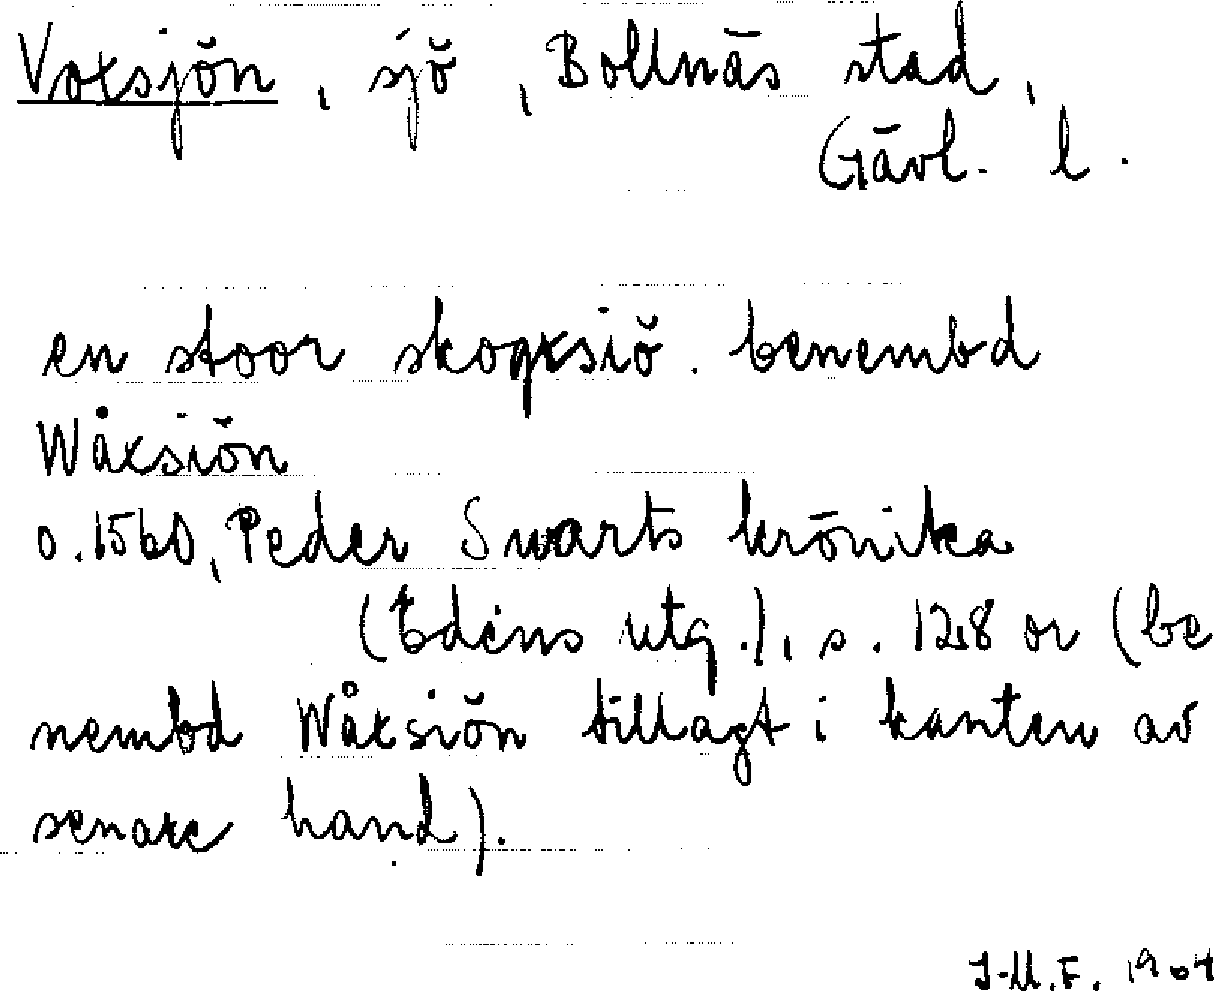 Voxsjön, sjö, Bollnäs stad,
Gävl. l.
en stoor skogxsiö. benembd
Wåxsiön
o. 1560, Peder Swarts krönika
(Edéns utg.), s. 128 or (be
nembd Wåxsiön tillagt i kanten av
senare hand).
J-M.F. 1904